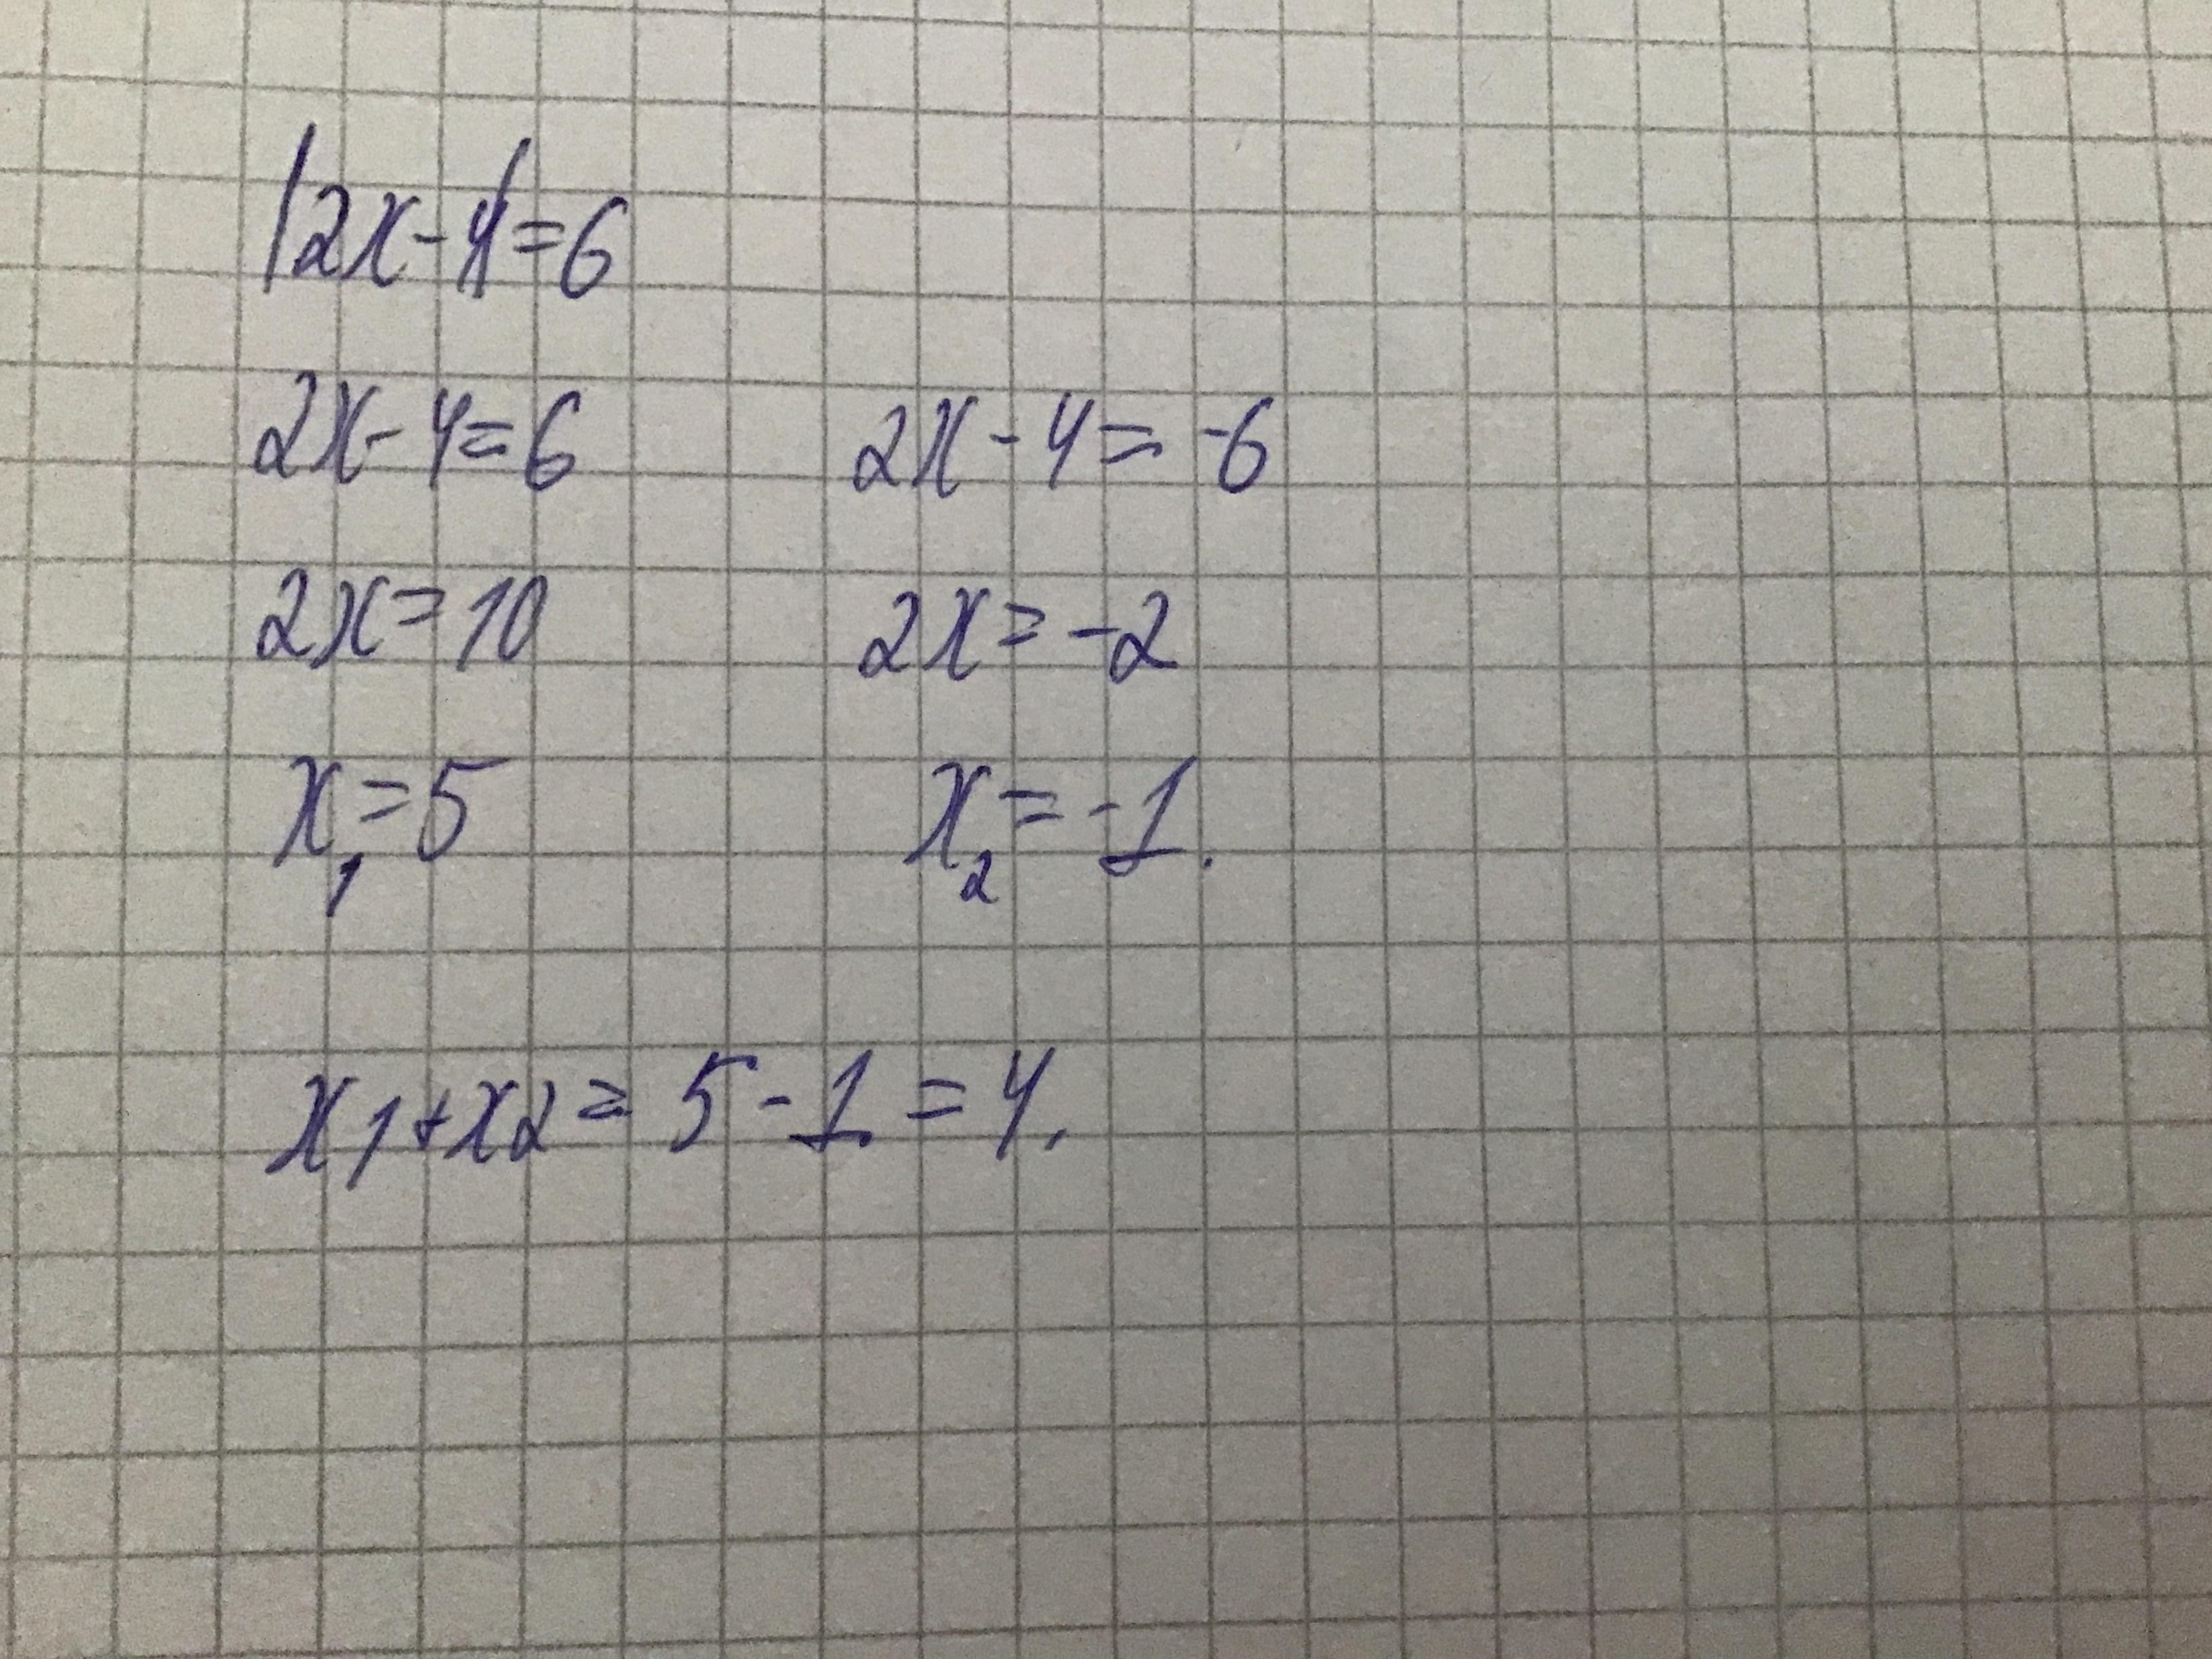 |2x-4|=6
2x-4=6 2x-4=-6
2x=10 2x=-2
x₁=5 x₂=-1.
x1+x2=5-1=4.